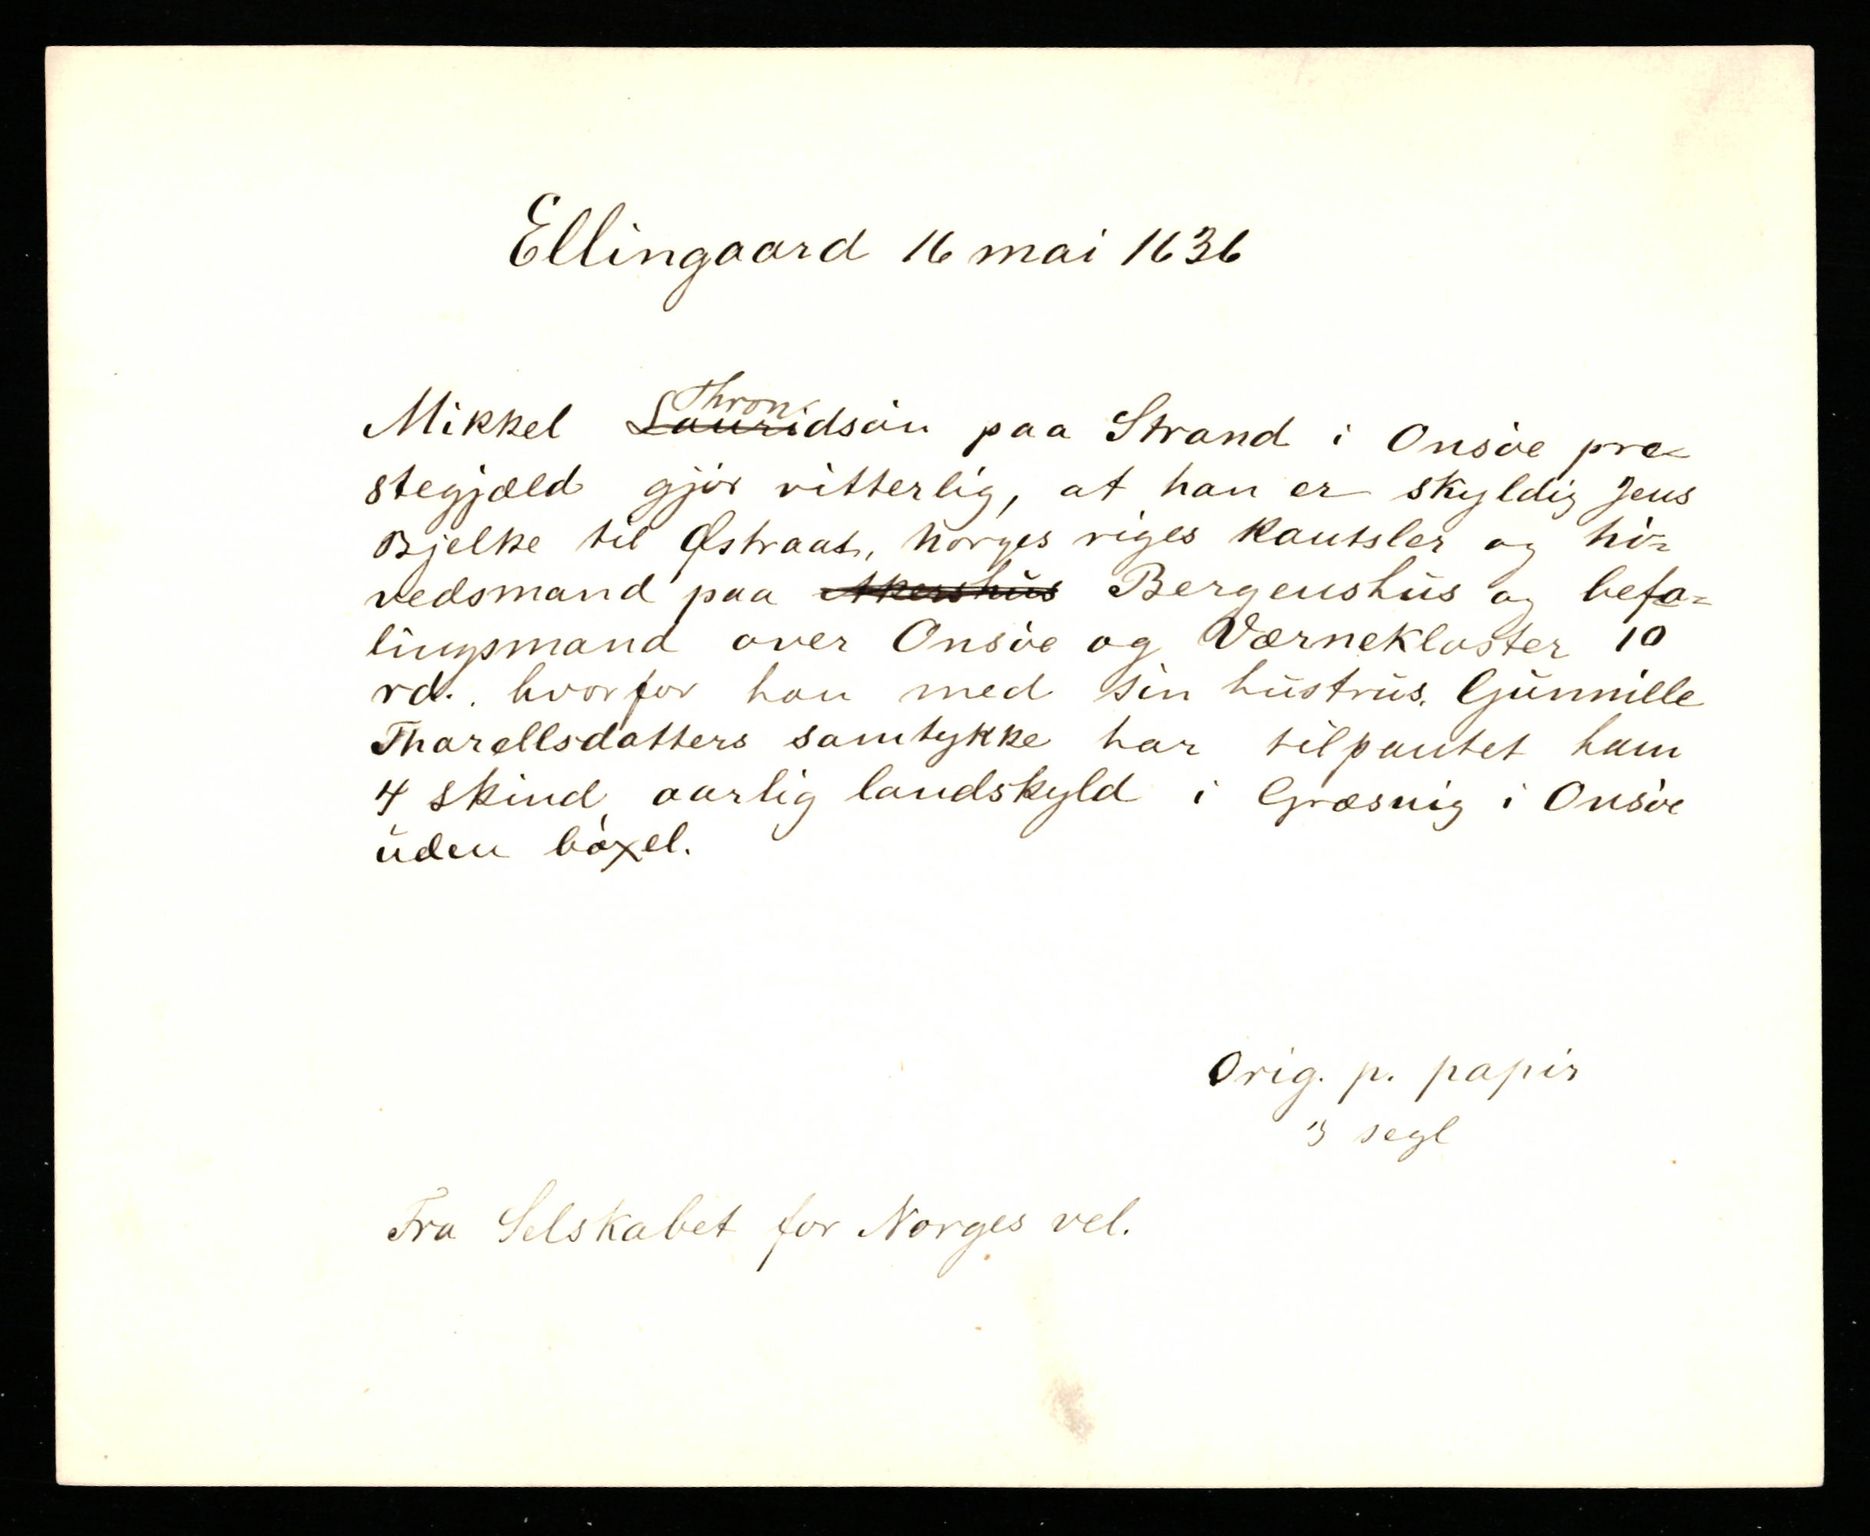 Ellingaard 16 mai 1636
Thron
Mikkel Lauridsön paa Strand i Onsöe pre-
stegjæld gjör vitterlig, at han er skyldig Jens
Bjelke til Østraat, Norges riges kantsler og hö-
vedsmand paa Akershus Bergenshus og befa-
lingsmand over Onsöe og Værnekloster 10
rd., hvorfor han med sin hustrus Gunnille
Tharellsdatters samtykke har tilpantet ham
4 skind aarlig landskyld i Græsnig i Onsöe
uden böxel.
Orig. p. papir
3 segl
Fra Selskabet for Norges vel.